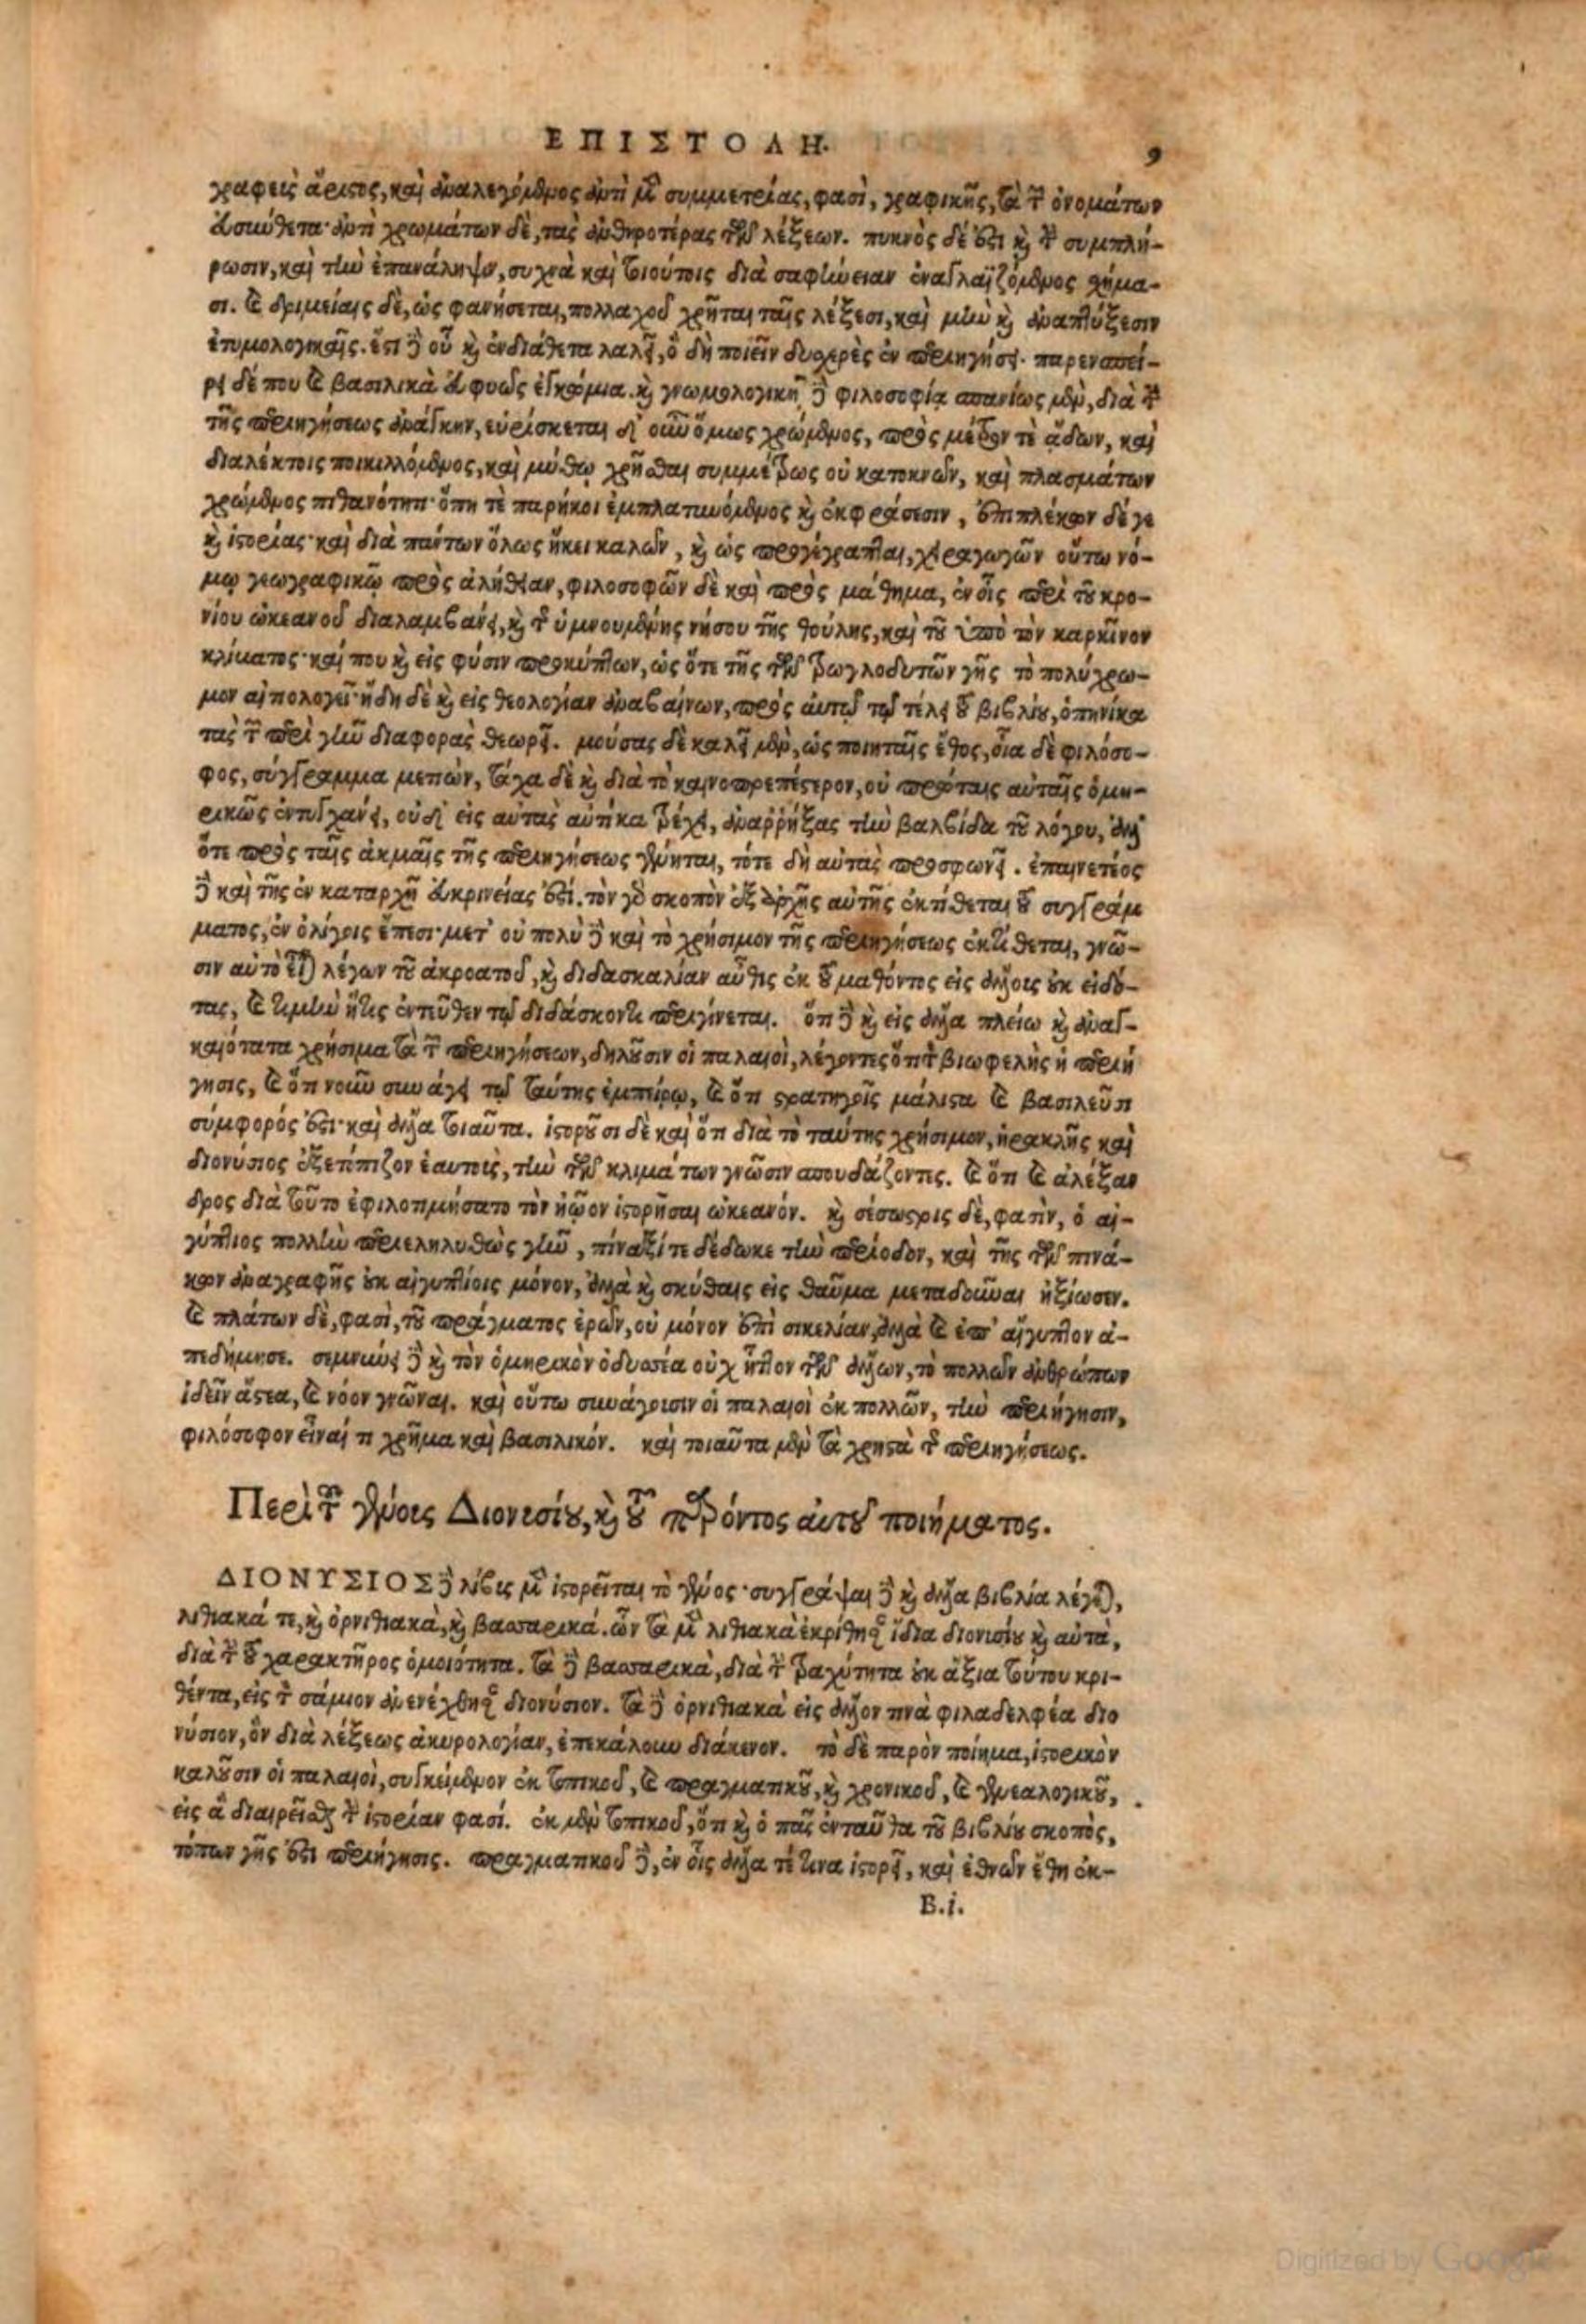 ΕΠΙΣΤΟΛΗ. 9
γραφεὺς ἄριστος, καὶ ἀναλεγόμενος ἀντὶ μὲν συμμετρίας, φασὶ, γραφικῆς, τὰ τῶν ὀνομάτων
εὐσύνθετα· ἀντὶ χρωμάτων δὲ, τὰς ἀνθηροτέρας τῶν λέξεων. πυκνὸς δέ ἐστι καὶ τὴν συμπλή-
ρωσιν, καὶ τὴν ἐπανάληψιν, συχνὰ καὶ τοιούτοις διὰ σαφήνειαν ἐναγλαϊζόμενος σχήμα-
σι. καὶ δριμείαις δὲ, ὡς φανήσεται, πολλαχοῦ χρῆται ταῖς λέξεσι, καὶ μὴν καὶ ἀναπτύξεσιν
ἐτυμολογικαῖς. ἔστι δὲ οὗ καὶ ἐνδιάθετα λαλεῖ, ὃ δὴ ποιεῖν δυσχερὲς ἐν περιηγήσει. παρενσπεί-
ρει δέ που καὶ βασιλικὰ εὐφυῶς ἐγκώμια. καὶ γνωμολογικῇ δὲ φιλοσοφίᾳ σπανίως μὲν, διὰ τὴν
τῆς περιηγήσεως ἀνάγκην, εὑρίσκεται δ' οὖν ὅμως χρώμενος, πρὸς μέτρον τὲ ᾄδων, καὶ
διαλέκτοις ποικιλλόμενος, καὶ μύθῳ χρῆσθαι συμμέτρως οὐ κατοκνῶν, καὶ πλασμάτων
χρώμενος πιθανότητι· ὅπη τὲ παρήκοι ἐμπλατυνόμενος καὶ ἐκφράσεσιν, ἐπιπλέκων δέ γε
καὶ ἱστορίας· καὶ διὰ πάντων ὅλως ἥκει καλῶν, καὶ ὡς προγέγραπται, χειραγωγῶν οὕτω νό-
μῳ γεωγραφικῷ πρὸς ἀλήθειαν, φιλοσοφῶν δὲ καὶ πρὸς μάθημα, ἐν οἷς περὶ τοῦ κρο-
νίου ὠκεανοῦ διαλαμβάνει, καὶ τῆς ὑμνουμένης νήσου τῆς θούλης, καὶ τοῦ ὑπὸ τὸν καρκῖνον
κλίματος· καί που καὶ εἰς φύσιν προκύπτων, ὡς ὅτε τῆς τῶν τρωγλοδυτῶν γῆς τὸ πολύχρω-
μον αἰτιολογεῖ· ἤδη δὲ καὶ εἰς θεολογίαν ἀναβαίνων, πρὸς αὐτῷ τῷ τέλει τοῦ βιβλίου, ὁπηνίκα
τὰς τῶν περὶ γῆν διαφορὰς θεωρεῖ. μούσας δὲ καλεῖ μὲν, ὡς ποιηταῖς ἔθος, οἷα δὲ φιλόσο-
φος, σύγγραμμα μετιὼν, τάχα δὲ καὶ διὰ τὸ καινοπρεπέστερον, οὐ πρώταις αὐταῖς ὁμη-
ρικῶς ἐντυγχάνει, οὐδ' εἰς αὐτὰς αὐτίκα τρέχει, ἀναῤῥήξας τὴν βαλβίδα τοῦ λόγου, ἀλλ'
ὅτε πρὸς ταῖς ἀκμαῖς τῆς περιηγήσεως γένηται, τότε δὴ αὐτὰς προσφωνεῖ. ἐπαινετέος
δὲ καὶ τῆς ἐν καταρχῇ εὐκρινείας ἐστί. τὸν γὰρ σκοπὸν ἐξ ἀρχῆς αὐτῆς ἐκτίθεται τοῦ συγγράμ
ματος, ἐν ὀλίγοις ἔπεσι· μετ' οὐ πολὺ δὲ καὶ τὸ χρήσιμον τῆς περιηγήσεως ἐκτίθεται, γνῶ-
σιν αὐτὸ εἶναι λέγων τοῦ ἀκροατοῦ, καὶ διδασκαλίαν αὖθις ἐκ τοῦ μαθόντος εἰς ἄλλους οὐκ εἰδό-
τας, καὶ τιμὴν ἥτις ἐντεῦθεν τῷ διδάσκοντι περιγίνεται. ὅτι δὲ καὶ εἰς ἄλλα πλείω καὶ ἀναγ-
καιότατα χρήσιμα τὰ τῶν περιηγήσεων, δηλοῦσιν οἱ παλαιοὶ, λέγοντες ὅτι τε βιωφελὴς ἡ περιή
γησις, καὶ ὅτι νοῦν συνάγει τῷ ταύτης ἐμπείρῳ, καὶ ὅτι στρατηγοῖς μάλιστα καὶ βασιλεῦσι
σύμφορός ἐστι· καὶ ἄλλα τοιαῦτα. ἱστοροῦσι δὲ καὶ ὅτι διὰ τὸ ταύτης χρήσιμον, ἡρακλῆς καὶ
διονύσιος ἐξετόπιζον ἑαυτοὺς, τὴν τῶν κλιμάτων γνῶσιν σπουδάζοντες. καὶ ὅτι καὶ ἀλέξαν
δρος διὰ τοῦτο ἐφιλοτιμήσατο τὸν ἠῷον ἱστορῆσαι ὠκεανόν. καὶ σέσωστρις δὲ, φασὶν, ὁ αἰ-
γύπτιος πολλὴν περιεληλυθὼς γῆν, πίναξί τε δέδωκε τὴν περίοδον, καὶ τῆς τῶν πινά-
κων ἀναγραφῆς οὐκ αἰγυπτίοις μόνον, ἀλλὰ καὶ σκύθαις εἰς θαῦμα μεταδοῦναι ἠξίωσεν.
καὶ πλάτων δὲ, φασὶ, τοῦ πράγματος ἐρῶν, οὐ μόνον ἐπὶ σικελίαν, ἀλλὰ καὶ ἐπ' αἴγυπτον ἀ-
πεδήμησε. σεμνύνει δὲ καὶ τὸν ὁμηρικὸν ὀδυσσέα οὐχ ἧττον τῶν ἄλλων, τὸ πολλῶν ἀνθρώπων
ἰδεῖν ἄστεα, καὶ νόον γνῶναι. καὶ οὕτω συνάγουσιν οἱ παλαιοὶ ἐκ πολλῶν, τὴν περιήγησιν,
φιλόσοφον εἶναί τι χρῆμα καὶ βασιλικόν. καὶ τοιαῦτα μὲν τὰ χρηστὰ τῆς περιηγήσεως.
Περὶ τοῦ γένους Διονυσίου, καὶ τοῦ παρόντος αὐτοῦ ποιήματος.
ΔΙΟΝΥΣΙΟΣ δὲ λίβυς μὲν ἱστορεῖται τὸ γένος· συγγράψαι δὲ καὶ ἄλλα βιβλία λέγεται,
λιθιακά τε, καὶ ὀρνιθιακὰ, καὶ βασσαρικά. ὧν τὰ μὲν λιθιακὰ ἐκρίθησαν ἴδια διονυσίου καὶ αὐτὰ,
διὰ τὴν τοῦ χαρακτῆρος ὁμοιότητα. τὰ δὲ βασσαρικὰ, διὰ τὴν τραχύτητα οὐκ ἄξια τούτου κρι-
θέντα, εἰς τὸν σάμιον ἀνενέχθησαν διονύσιον. τὰ δὲ ὀρνιθιακὰ εἰς ἄλλον τινὰ φιλαδελφέα διο
νύσιον, ὃν διὰ λέξεως ἀκυρολογίαν, ἐπεκάλουν διάκενον. τὸ δὲ παρὸν ποίημα, ἱστορικὸν
καλοῦσιν οἱ παλαιοὶ, συγκείμενον ἐκ τοπικοῦ, καὶ πραγματικοῦ, καὶ χρονικοῦ, καὶ γενεαλογικοῦ,
εἰς ἃ διαιρεῖσθαι τὴν ἱστορίαν φασί. ἐκ μὲν τοπικοῦ, ὅτι καὶ ὁ πᾶς ἐνταῦθα τοῦ βιβλίου σκοπὸς,
τόπων γῆς ἐστι περιήγησις. πραγματικοῦ δὲ, ἐν οἷς ἄλλα τέ τινα ἱστορεῖ, καὶ ἐθνῶν ἔθη ἐκ-
B.i.
Digitized by Google